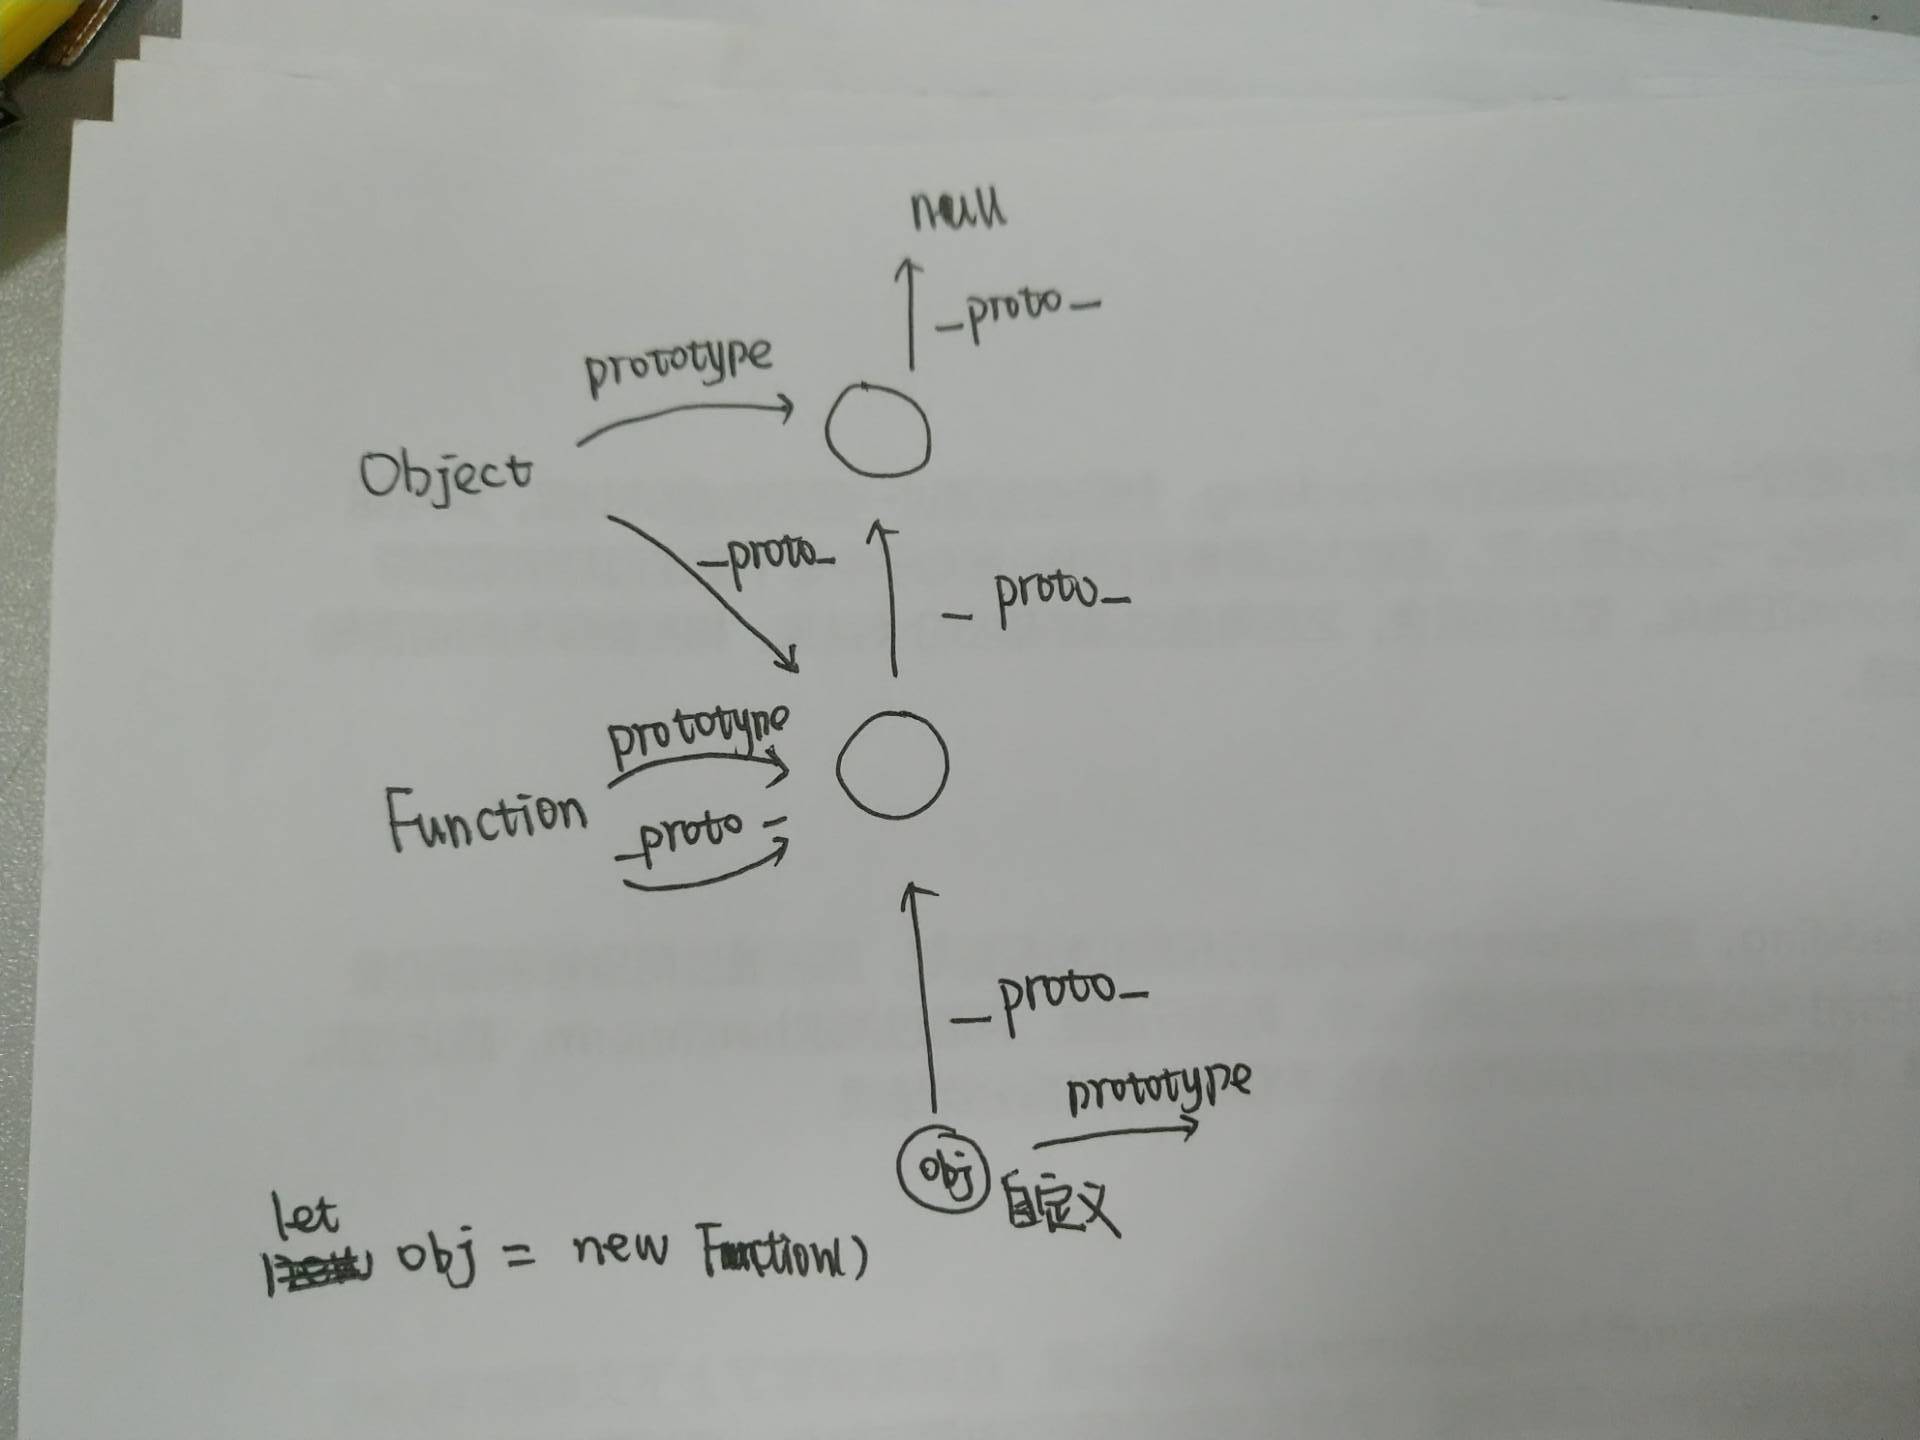 null
_proto_
prototype
Object
_proto_
_proto_
prototype
Function
_proto_
_proto_
prototype
obj
自定义
let
obj = new Function()